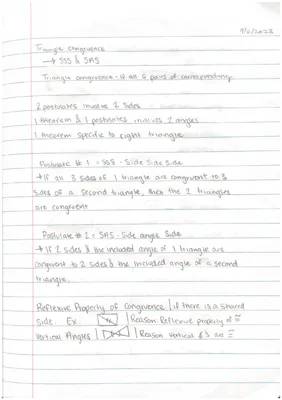 9/6/2023
Triangle congruence
→ SSS & SAS
Triangle congruence - if all 6 pairs of corresponding
2 postulates involve 2 sides
1 theorem & 1 postulates involves 2 angles
1 theorem specific to right triangle
Postulate # 1 = SSS - Side Side Side
→ If all 3 sides of 1 triangle are congruent to 3
sides of a second triangle, then the 2 triangles
are congruent
Postulate # 2 = SAS - Side angle Side
→ If 2 sides & the included angle of 1 triangle are
congruent to 2 sides & the included angle of a second
triangle.
Reflexive Property of Congruence | if there is a shared
side. Ex. | Reason: Reflexive property of ≅
Vertical Angles | | Reason vertical ∠s are ≅